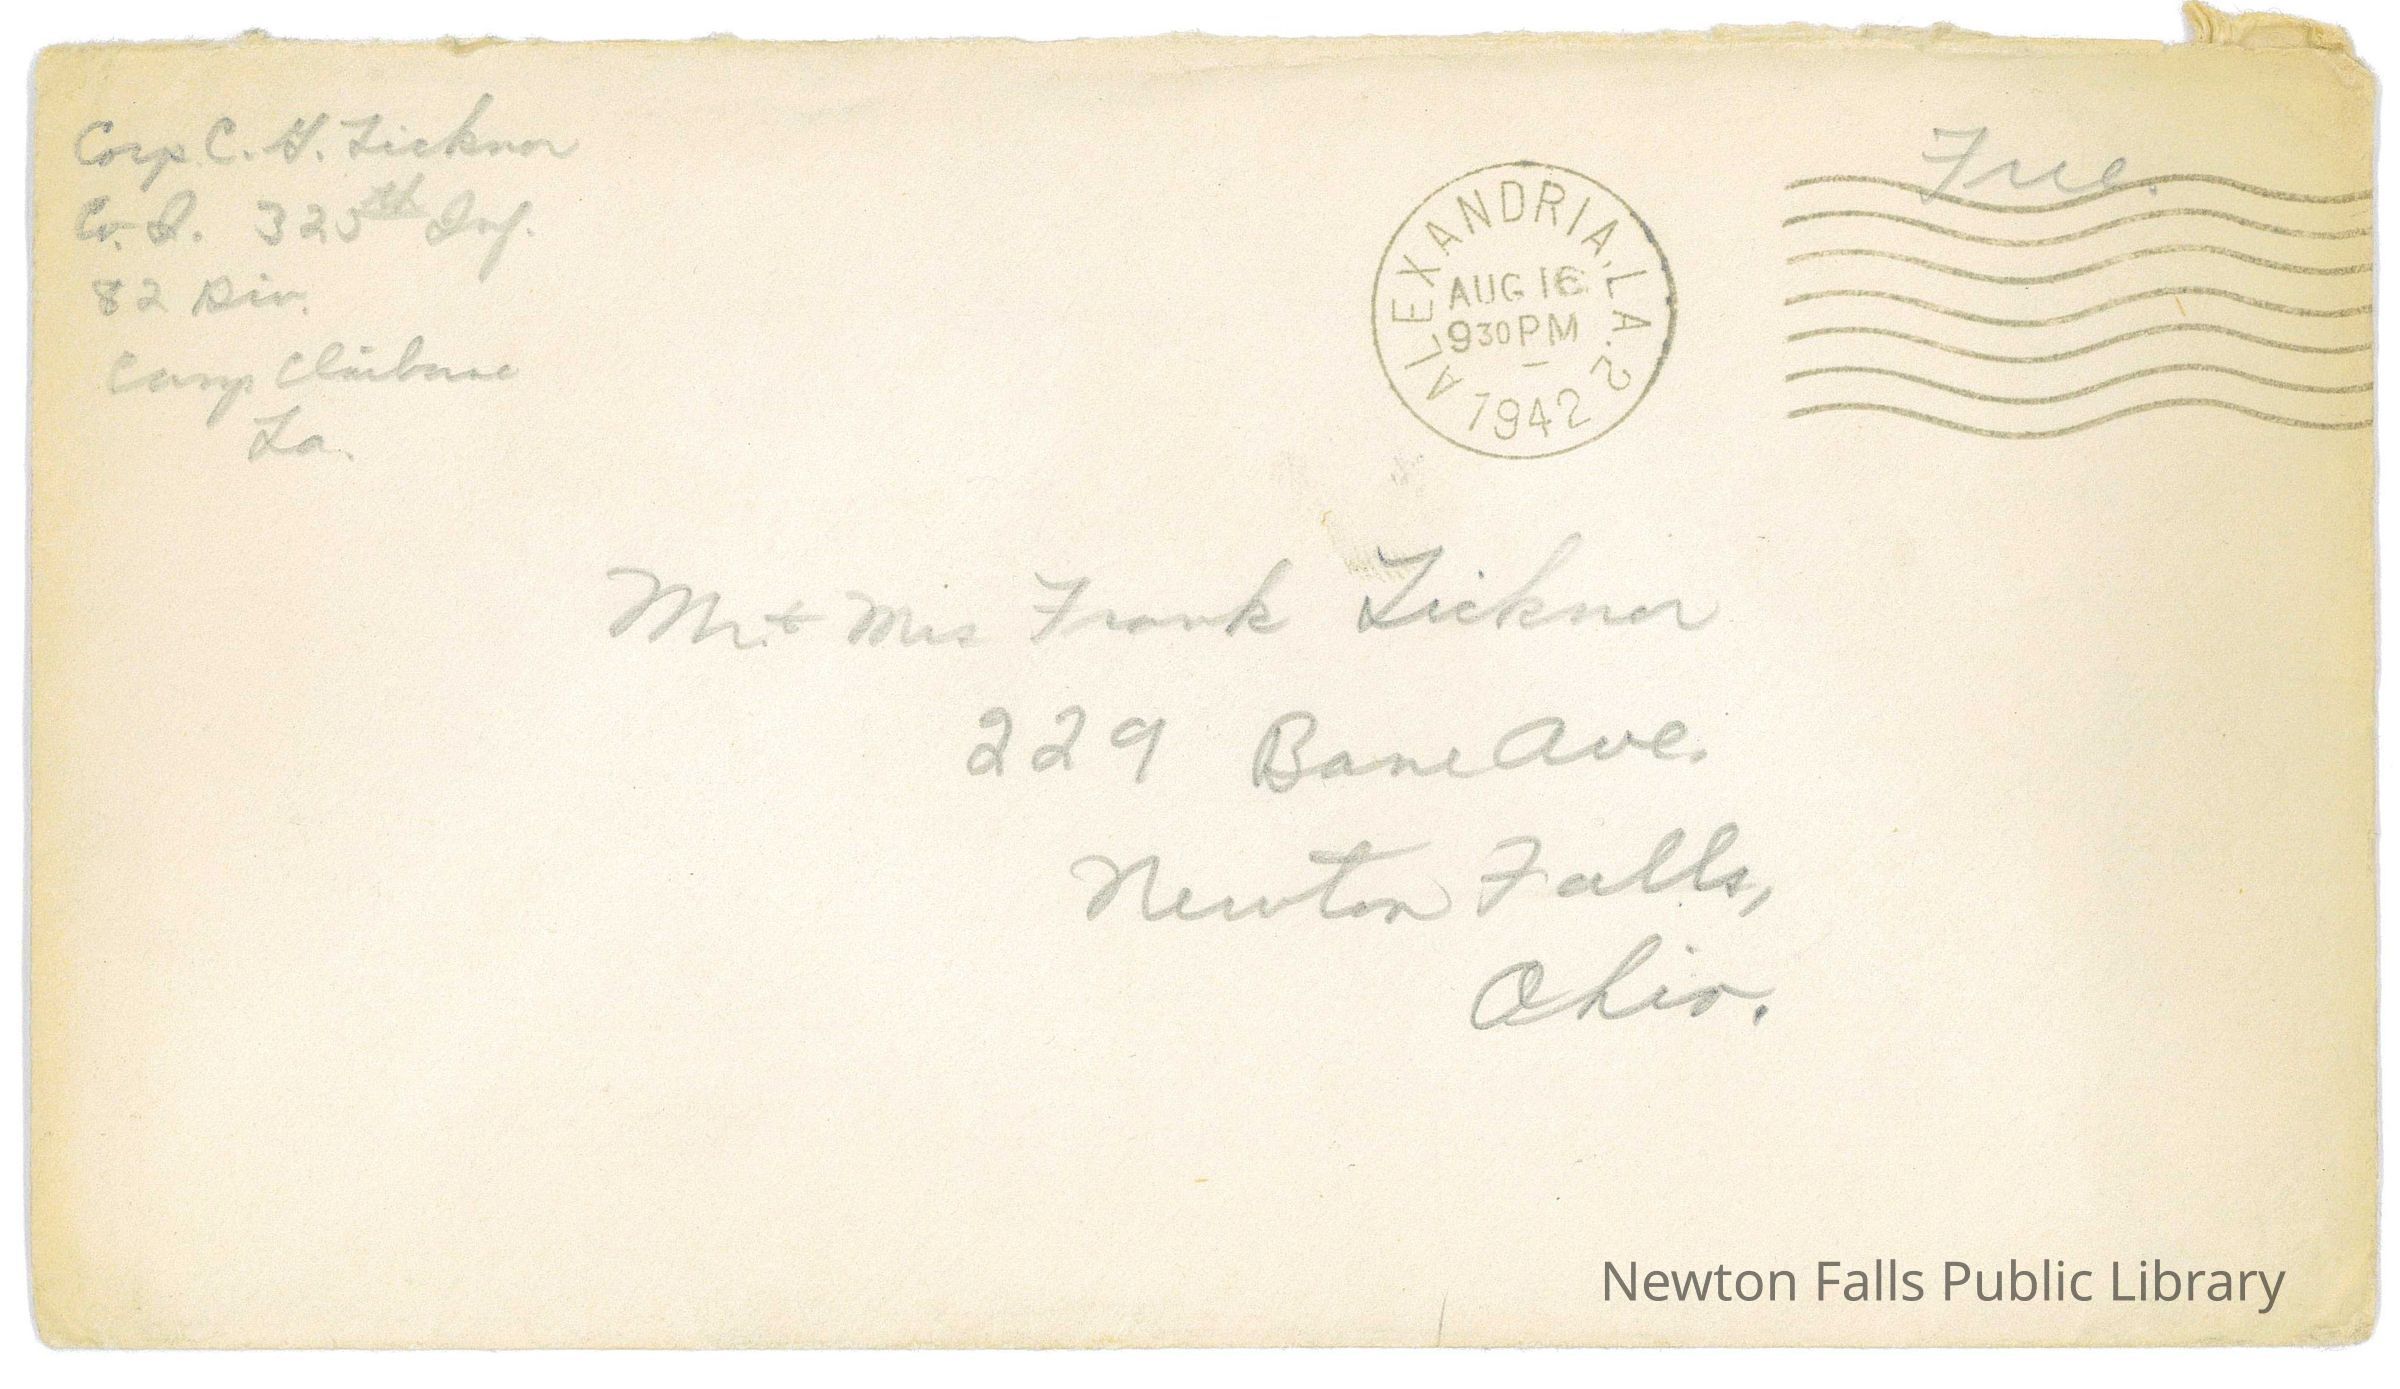 Corp. C. H. Ticknor
Co. I. 325th Inf.
82 Div.
Camp Claiborne
La.
Free.
ALEXANDRIA, LA. 2
AUG 16
930 PM
1942
Mr. + Mrs Frank Ticknor
229 Bane Ave.
Newton Falls,
Ohio.
Newton Falls Public Library